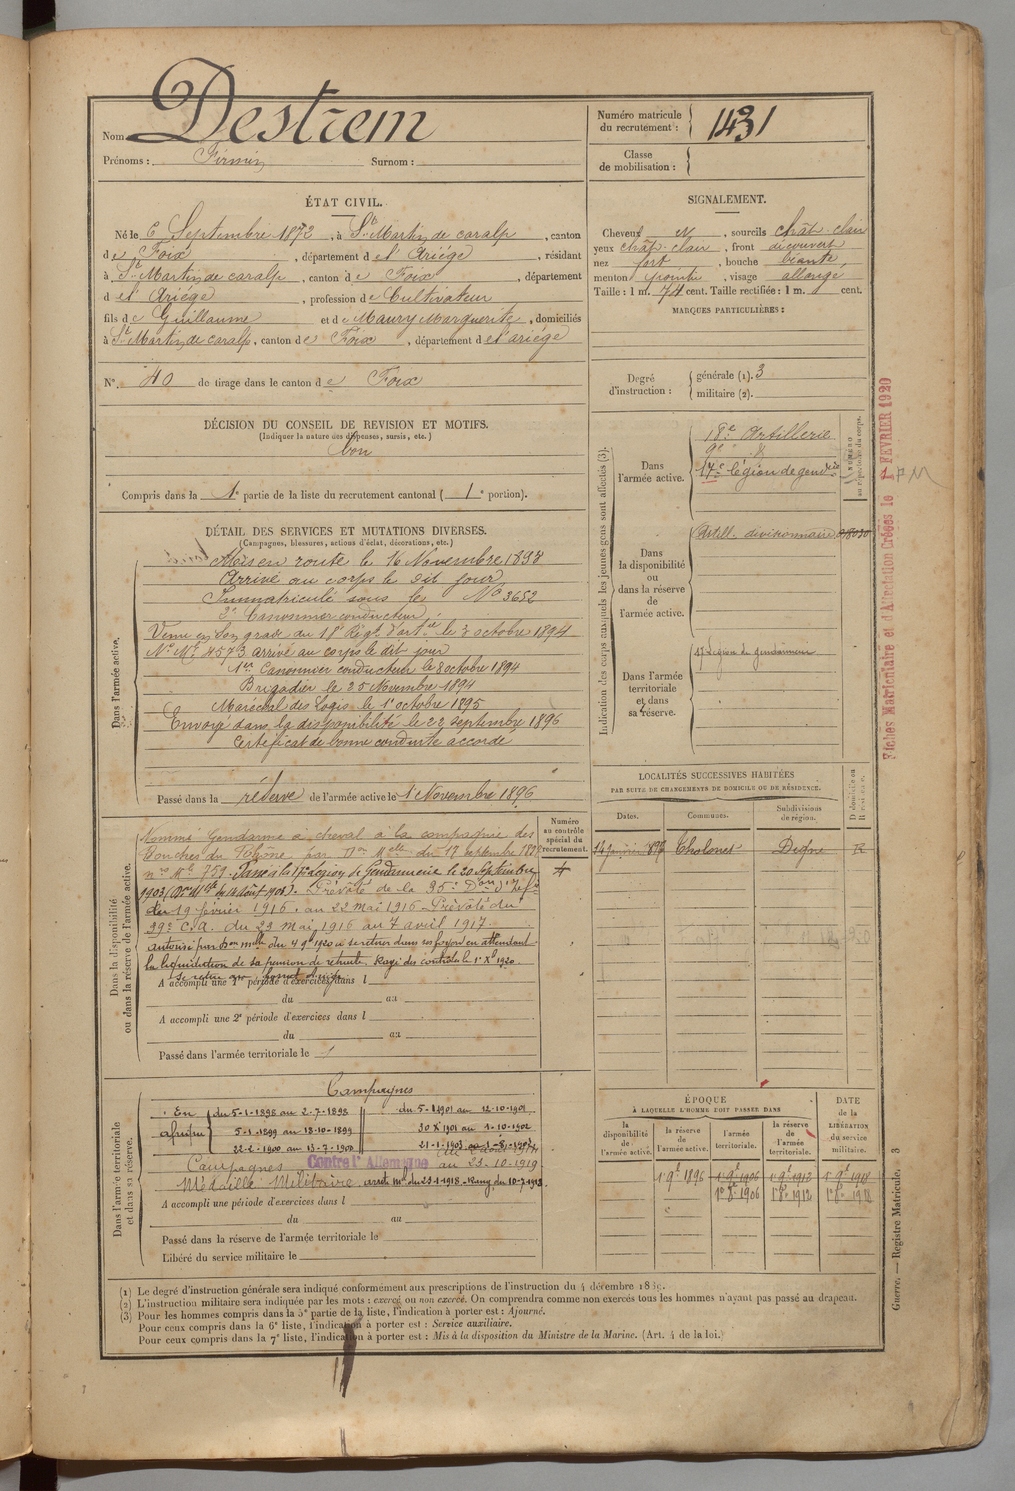 Nom Destrem
Prénoms : Firmin Surnom :
Numéro matricule du recrutement : 1431
Classe de mobilisation :
ÉTAT CIVIL.
Né le 6 Septembre 1872, à St Martin de caralp, canton
de Foix, département de l'Ariége, résidant
à St Martin de caralp, canton de Foix, département
d el' Ariége, profession de Cultivateur
fils de Guillaume et de Maury Marguerite, domiciliés
à St Martin de caralp, canton de Foix, département de l'ariége
N° 40 de tirage dans le canton de Foix
DÉCISION DU CONSEIL DE REVISION ET MOTIFS.
(Indiquer la nature des dispenses, sursis, etc.)
bon
Compris dans la 1e partie de la liste du recrutement cantonal (1e portion).
SIGNALEMENT.
Cheveux M, sourcils chât-clair
yeux chât-clair, front découvert
nez fort, bouche béante,
menton pointu, visage allongé
Taille : 1 m. 74 cent. Taille rectifiée : 1 m. cent.
MARQUES PARTICULIÈRES :
Degré d'instruction : générale (1). 3
militaire (2).
DÉTAIL DES SERVICES ET MUTATIONS DIVERSES.
(Campagnes, blessures, actions d'éclat, décorations, etc.)
Dans l'armée active.
Mis en route le 16 Novembre 1893
Arrivé au corps le dit jour
Immatriculé sous le No 3652
2e Canonnier conducteur
Venu en son grade au 18e Régt d'artie le 3 octobre 1894
No Mle 4573 arrivé au corps le dit jour
1er Canonnier conducteur le 8 octobre 1894
Brigadier le 25 Novembre 1894
Maréchal des Logis le 1er octobre 1895
Envoyé dans la disponibilité le 22 septembre 1896
Certificat de bonne conduite accordé
Passé dans la réserve de l'armée active le 1 Novembre 1896
Indication des corps auxquels les jeunes gens sont affectés (3).
Dans l'armée active.
18e Artillerie
9e
17e légion de gendie
NUMÉRO au répertoire du corps.
Dans la disponibilité ou dans la réserve de l'armée active.
Artill. divisionnaire
Dans l'armée territoriale et dans sa réserve.
17 Légion de gendarmerie
Fiches Matriculaire et d'Affectation Créées le 1 FEVRIER 1920
LOCALITÉS SUCCESSIVES HABITÉES
PAR SUITE DE CHANGEMENTS DE DOMICILE OU DE RÉSIDENCE.
Dates. Communes. Subdivisions de région. Domicile ou Résidence.
14 janvier 1897 Digne R
Dans la disponibilité ou dans la réserve de l'armée active.
Numéro au contrôle spécial du recrutement.
Nommé Gendarme à cheval à la compagnie des
Bouches du Rhône par Don Mlle du 17 septembre 1897
no Mle 759. Passé à la 17e Légion de Gendarmerie le 20 Septembre
1903 (Don Mlle du 14 août 1903). Prévôté de la 35e Don d'Infie
du 19 février 1916 au 22 mai 1916 Prévôté du
39e C.A. du 23 mai 1916 au 7 avril 1917.
autorisé par Don mlle du 4 9bre 1920 à se retirer dans ses foyers en attendant
la liquidation de sa pension de retraite. Rayé des contrôles le 1er Xbre 1920.
A accompli une 1e période d'exercices dans l
du au
A accompli une 2e période d'exercices dans l
du au
Passé dans l'armée territoriale le
Dans l'armée territoriale et dans sa réserve.
Campagnes
En afrique
du 5-1-1898 au 2-7-1898 du 5-1-1901 au 12-10-1901
5-1-1899 au 18-10-1899 30 Xbre 1901 au 1-10-1902
22-2-1900 au 13-7-1900 21-1-1903 au
Campagnes Contre l'Allemagne au 23-10-1919
Médaille Militaire arrêté Mel du 23-1-1918. Rang du 10-7-1918.
A accompli une période d'exercices dans l
du au
Passé dans la réserve de l'armée territoriale le
Libéré du service militaire le
ÉPOQUE
À LAQUELLE L'HOMME DOIT PASSER DANS
la disponibilité de l'armée active. la réserve de l'armée active. l'armée territoriale. la réserve de l'armée territoriale.
DATE de la LIBÉRATION du service militaire.
1 9bre 1896 1 9bre 1906 1 9bre 1912 1 9bre 1918
1er 8bre 1906 1 8bre 1912
(1) Le degré d'instruction générale sera indiqué conformément aux prescriptions de l'instruction du 4 décembre 1889.
(2) L'instruction militaire sera indiquée par les mots : exercé ou non exercé. On comprendra comme non exercés tous les hommes n'ayant pas passé au drapeau.
(3) Pour les hommes compris dans la 5e partie de la liste, l'indication à porter est : Ajourné.
Pour ceux compris dans la 6e liste, l'indication à porter est : Service auxiliaire.
Pour ceux compris dans la 7e liste, l'indication à porter est : Mis à la disposition du Ministre de la Marine. (Art. 4 de la loi.)
Guerre. — Registre Matricule. 3